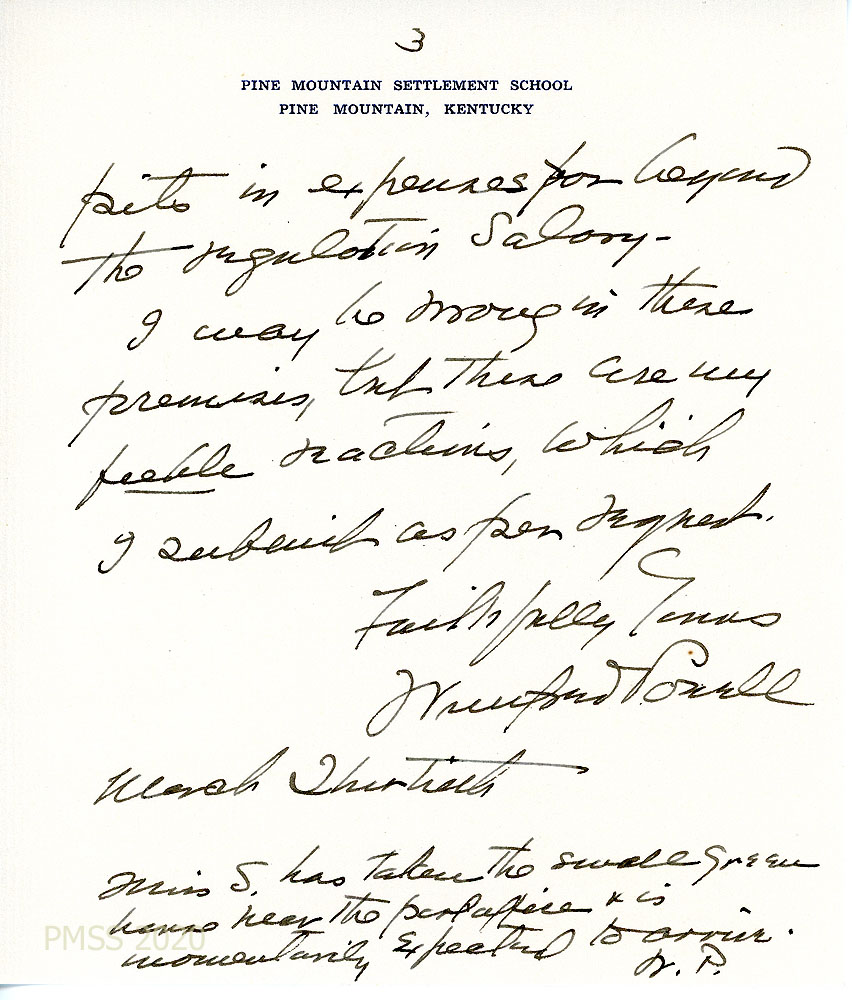 3
PINE MOUNTAIN SETTLEMENT SCHOOL
PINE MOUNTAIN, KENTUCKY
in expenses far beyond
the regulation Salary -
I may be wrong in these
premises, but these are my
feeble reactions, which
I submit as per request.
Faithfully Yours
Powell
March Thirtieth
Miss S. has taken the small green
house near the post office & is
momentarily expected to arrive.
W. P.
PMSS 2020